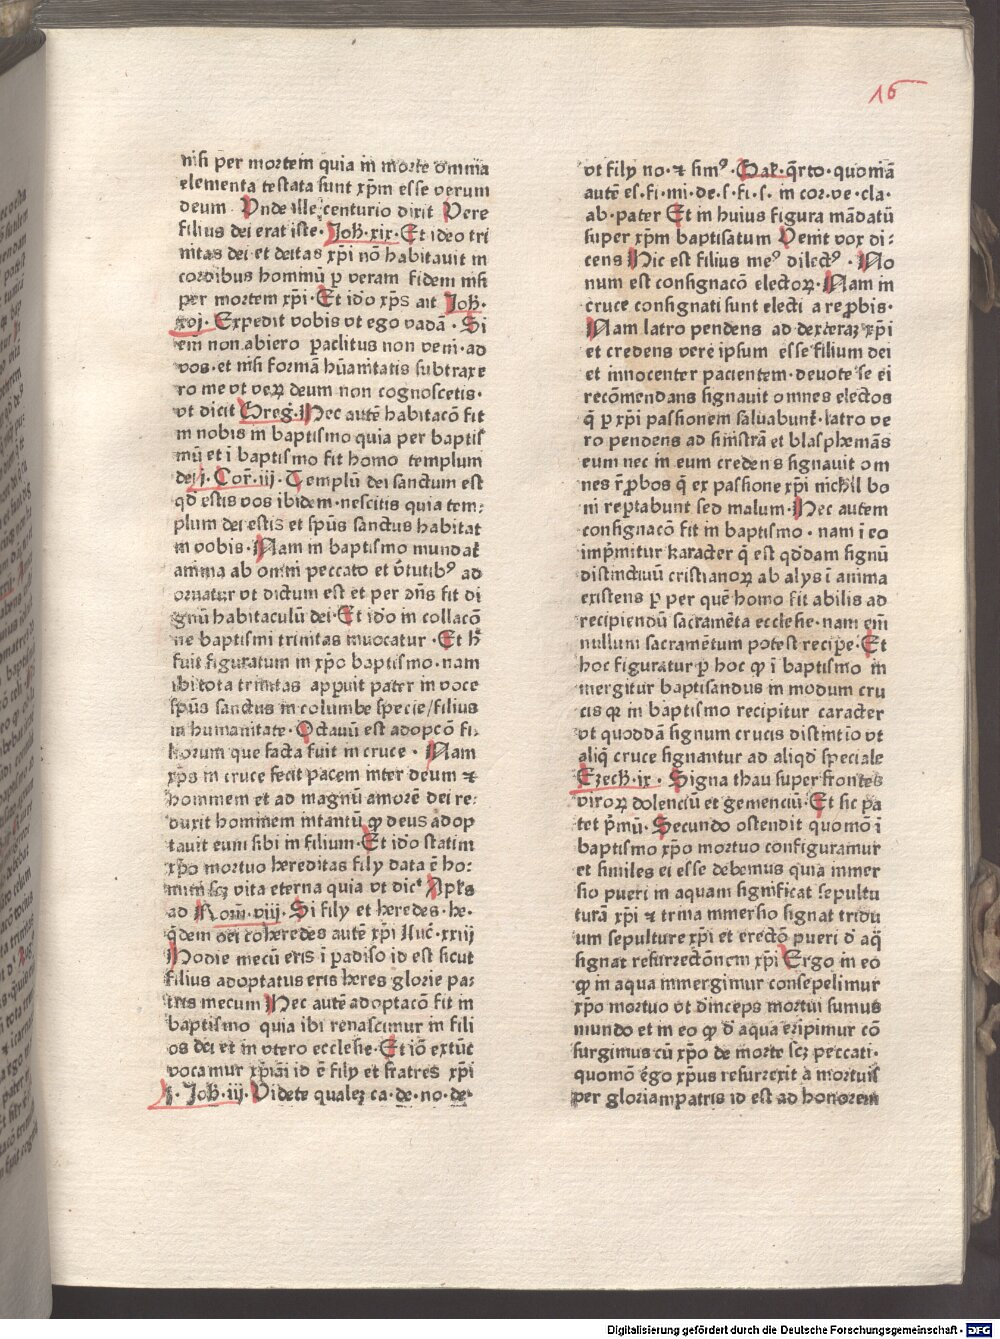 16
nisi per mortem quia in morte omnia
elementa testata sunt xp̄m esse verum
deum Vnde ille centurio dixit Vere
filius dei erat iste· Joħ·xix· Et ideo tri
nitas dei et deitas xp̄i nō habitauit in
cordibus hominū p̱ veram fidem nisi
per mortem xp̄i· Et idō xp̄s ait Joħ·
xvj· Expedit vobis vt ego vadā· Si
em̄ non abiero paclitus non veni·ad
vos·et nisi formā hūanitatis subtraxe
ro me vt veꝝ deum non cognoscetis·
vt dicit Greg̾· Hec autē habitacō fit
in nobis in baptismo quia per baptis
mū et ī baptismo fit homo templum
dei j· Cor̄·iij· Templū dei sanctum est
qd̄ estis vos ibidem·nescitis quia tem⸗
plum dei estis et sp̄us sanctus habitat
in vobis· Nam in baptismo mundat̄
anima ab omni peccato et v̄tutibꝰ ad
ornatur vt dictum est et per dn̄s fit di
gnū habitaculū dei· Et idō in collacō
ne baptismi trinitas inuocatur· Et ħ
fuit figuratum in xp̄o baptismo·nam
ibi tota trinitas appuit pater in voce
sp̄us sanctus in columbe specie/filius
in humanitate· Octauū est adopcō fi⸗
liorum que facta fuit in cruce· Nam
xp̄s in cruce fecit pacem inter deum ⁊
hominem et ad magnū amorē dei re⸗
duxit hominem intantū ꝙ deus adop
tauit eum sibi in filium· Et idō statim
xp̄o mortuo hereditas filij data ē ho⸗
mini scꝫ vita eterna quia vt dic̄t Ap̄ls
ad Rom̄·viij· Si filij et heredes·he⸗
q̄dem dei coheredes autē xp̄i Luc̄·xxiij
Hodie mecū eris ī padiso id est sicut
filius adoptatus eris heres glorie pa⸗
tris mecum Hec autē adoptacō fit in
baptismo quia ibi renascimur in fili
os dei et in vtero ecclesie· Et iō extūt
vocamur xp̄iāi id ē filij et fratres xp̄i
j· Joħ·iij· Videte qualeꝫ ca·de·no·de·
vt filij no·⁊ simꝰ· Gal̄·q̄rto·quomā
autē es·fi·mi·de·s·fi·s· in cor·ve·cla·
ab·pater Et in huius figura mādatū
super xp̄m baptisatum Venit vox di⸗
cens Hic est filius meꝰ dilectꝰ· No
num est consignacō electoꝝ· Nam in
cruce consignati sunt electi a rep̄bis·
Nam latro pendens ad dexteraꝫ xp̄i
et credens vere ipsum esse filium dei
et innocenter pacientem·deuote se ei
recōmendans signauit omnes electos
q̄ p̱ xp̄i passionem saluabunt̄·latro ve
ro pendens ad sinistrā et blasphemās
eum nec in eum credens signauit om
nes r̄pbos q̄ ex passione xp̄i nichil bo
ni reptabunt sed malum· Hec autem
consignacō fit in baptismo·nam ī eo
imp̄mitur karacter q̄ est qd̄dam signū
distinctiuū cristianoꝝ ab alijs ī anima
existens p̱ per quē homo fit abilis ad
recipiendū sacramēta ecclesie·nam em̄
nullum sacramētum potest recipe· Et
hoc figuratur p̱ hoc ꝙ ī baptismo in
mergitur baptisandus in modum cru
cis qꝛ in baptismo recipitur caracter
vt quoddā signum crucis distinctio vt
aliq̄ cruce signantur ad aliqd̄ speciale
Ezech·ix· Signa thau super frontes
viroꝝ dolenciū et gemenciū· Et sic pa
tet p̄mū· Secundo ostendit quomō ī
baptismo xp̄o mortuo configuramur
et similes ei esse debemus quia immer
sio pueri in aquam significat sepultu
turā xp̄i ⁊ trina immersio signat tridu
um sepulture xp̄i et erectō pueri d̄ aq̄
signat resurrectōnem xp̄i Ergo in eo
ꝙ in aqua immergimur consepelimur
xp̄o mortuo vt dinceps mortui sumus
mundo et in eo ꝙ d̄ aqua eripimur cō
surgimus cū xp̄o de morte scꝫ peccati·
quomō ergo xp̄us resurrexit a mortuis
per gloriam patris id est ad honorem
Digitalisierung gefördert durch die Deutsche Forschungsgemeinschaft · DFG